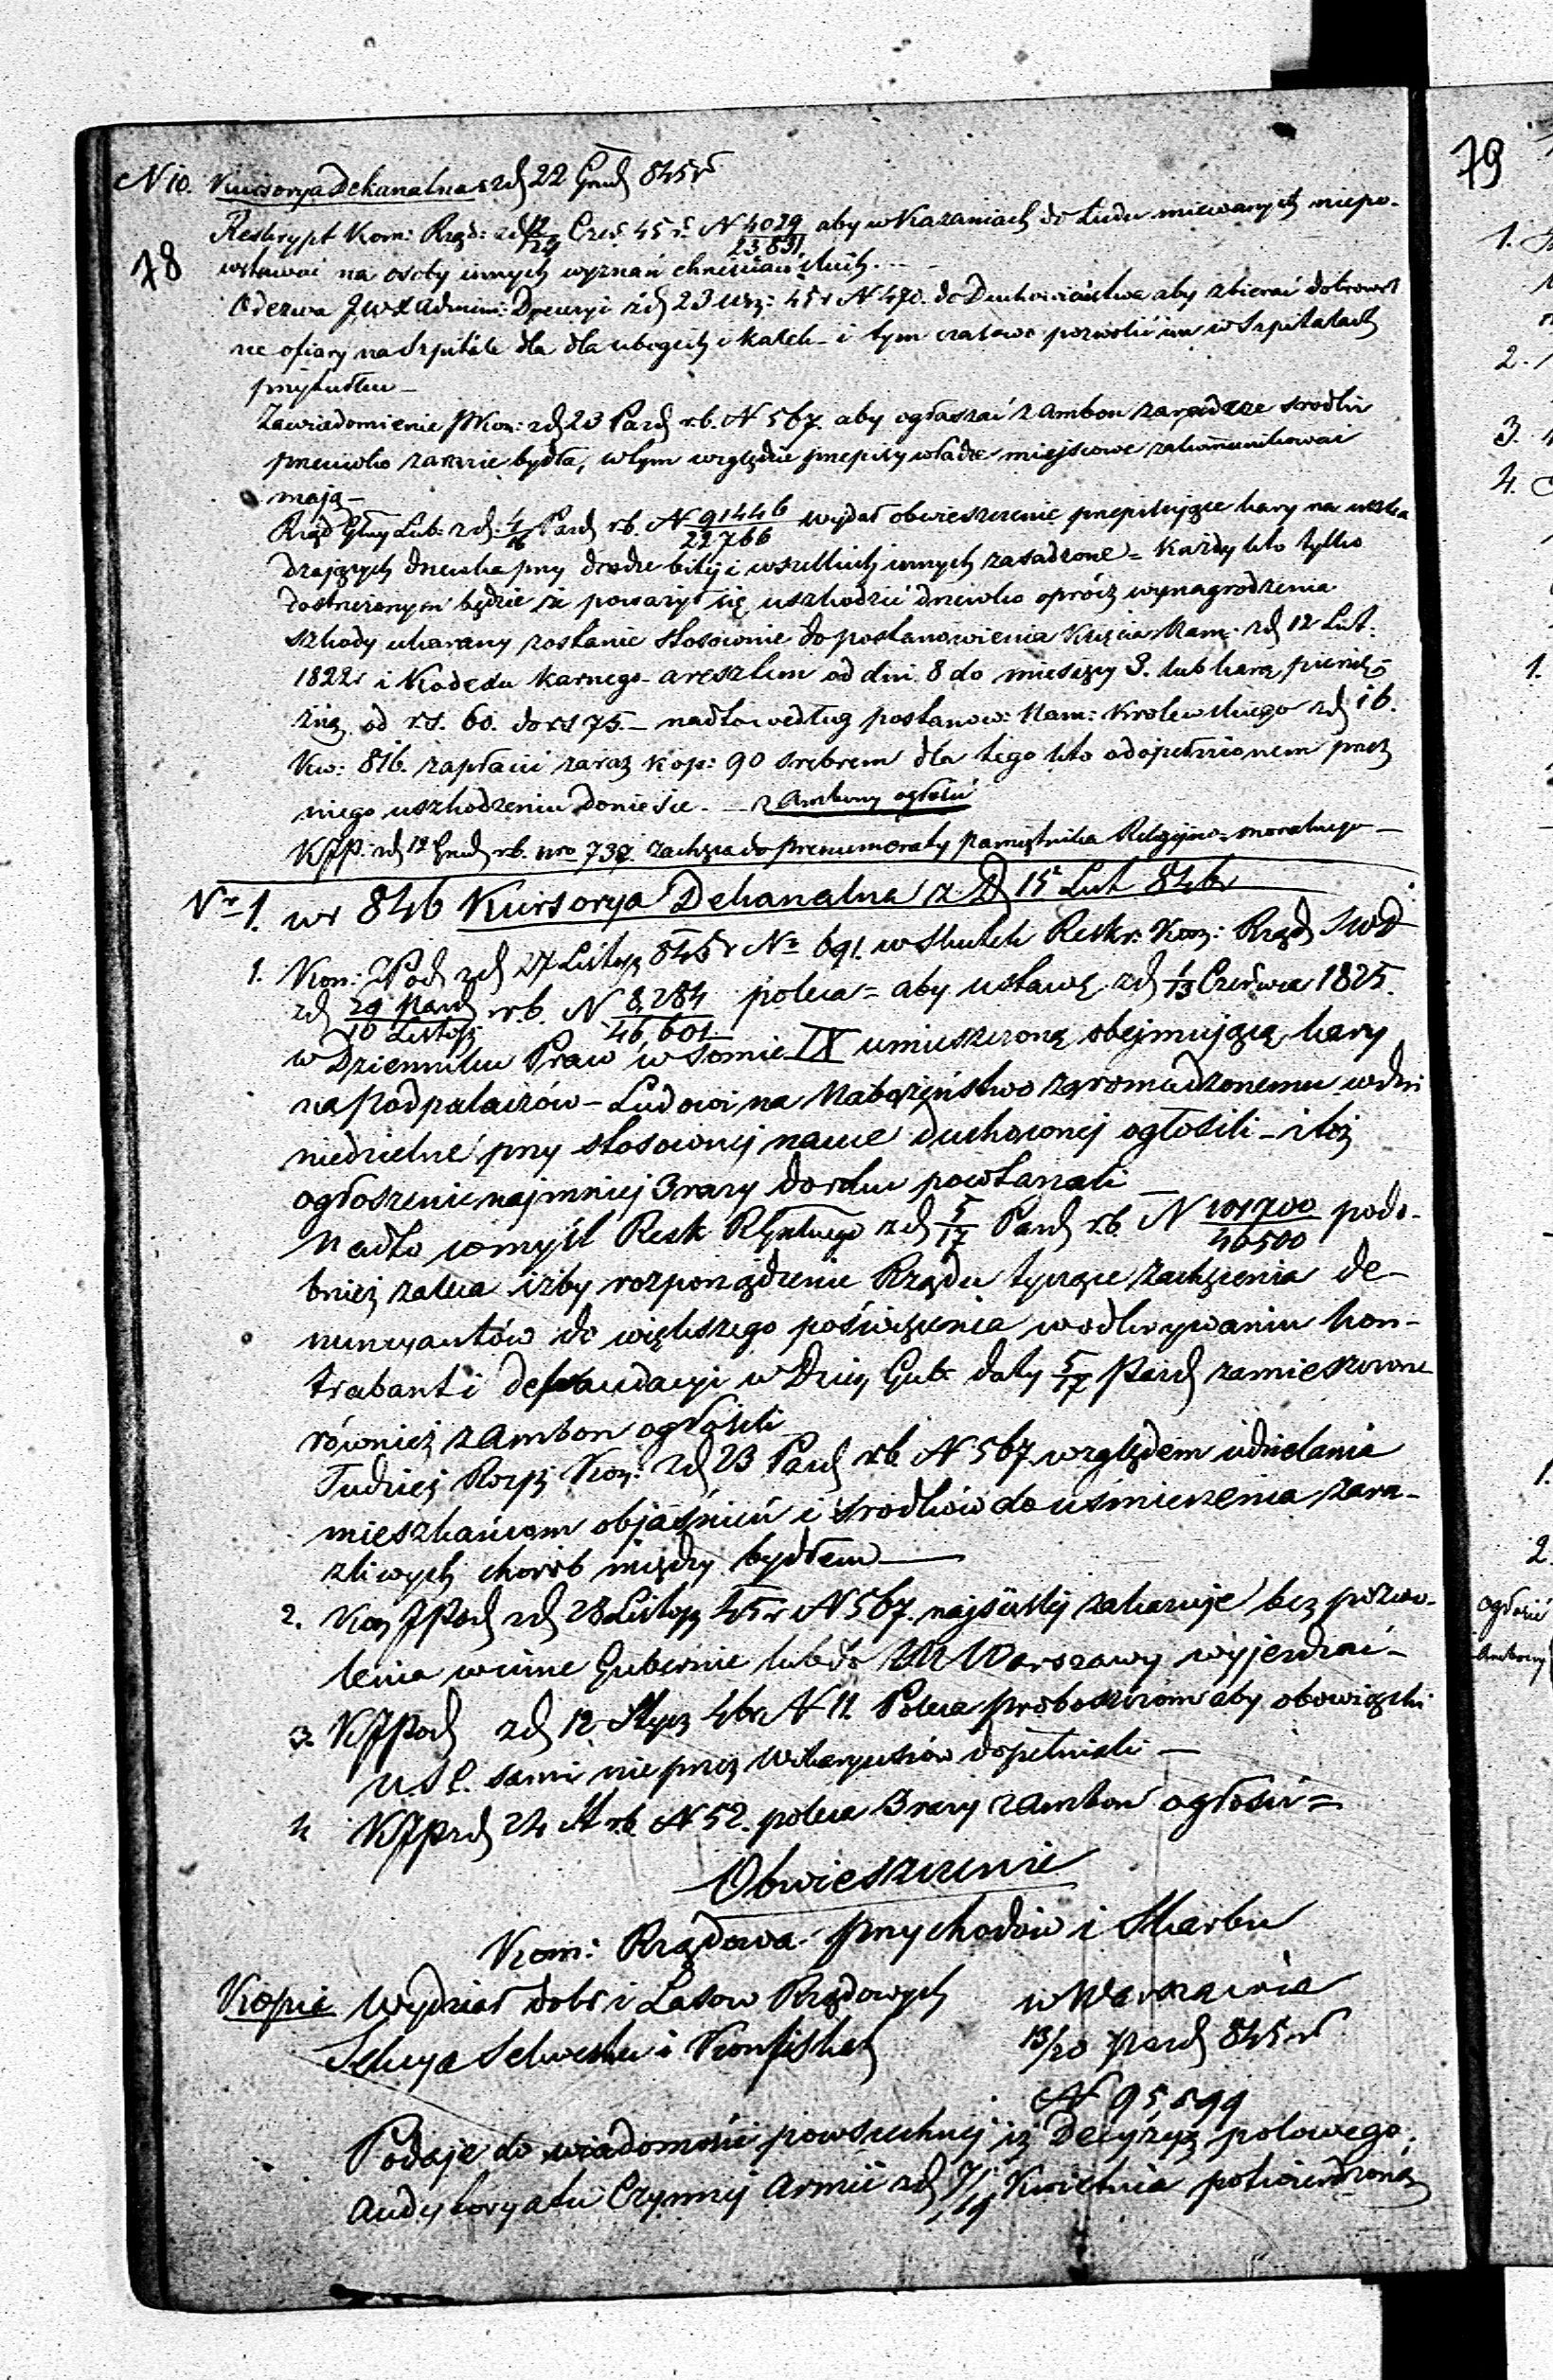 N 10. Kursorya Dekanalna z d 22 Grud 845 r
Reskrypt Kom: Rząd: z d 12/24 Czer. 45 r. N 4029/23831 aby w Kazaniach do Ludu miewanych niepo-
78
wstawać na osoby innych wyznań chrześciańskich. —
Odezwa J.W.X Admini: Dyecezyi z d 23 Wrz: 45 r N 470. do Duchowieństwa aby zbierać dobrowol
ne ofiary na Szpitale dla dla ubogich i kalek – i tym czasowo pozwolić im w Szpitalach
przytułku –
Zawiadomienie JKon: z d 23 Pazd r.b. N 567. aby ogłaszać z ambon zaradcze srodki
przeciwko zarazie bydła, w tym względzie przepisy władze miejscowe zakommunikować
mają –
Rząd Głny Lub: z d 4/16 Pazd r.b. N 91446/22766 wydał obwieszczenie przepisujące kary na uszka
dzających drzewka przy drodze bitej i wszelkich innych zasadzone = Każdy kto tylko
dostrzeżonym będzie że poważył się uszkodzić drzewko oprócz wynagrodzenia
szkody ukarany zostanie stosownie do postanowienia Księcia Nam: z d 12 Lut.
1822 r i Kodexu Karnego – aresztem od dni 8 do miesięcy 3. lub karą pienię=
żną od r.s. 60. do r.s 75. – nadto według postanow: Nam: Krolewskiego z d 16.
Kw: 816. zapłaci zaraz kop: 90 srebrem dla tego kto o dopełnionem przez
niego uszkodzeniu doniesie. — z Ambony ogłosić
KJP. z d 12 Grud r.b. nro 737. zachęca do prenumeraty pamiętnika Religijno=moralnego —
Nr 1. w r 846 Kursorya Dekanalna z D 15 Lut 846 r
1. Kon: JPod z d 27 Listop 845 r Nr 691. w skutek Reskr: Kom: Rząd S W D
z d 29 Pazd/10 Listop r.b. N 8,284/46,601 poleca = aby ustawę z d 1/13 Czerwca 1825.
w Dzienniku Praw w Tomie IX umieszczoną obejmującą kary
na podpalaczów – Ludowi na Nabożeństwo zgromadzonemu w dni
niedzielne przy stosownej nauce duchownej ogłosili – i też
ogłoszenie najmniej 3 razy do roku powtarzali
Nadto w myśl Resk R Gubnego z d 5/17 Pazd r.b. N 101700/40500 podo-
bnież zaleca iżby rozporządzenie Rządu tyczące zachęcenia de-
nuncyantów do większego poświęcenia w odkrywaniu kon-
trabant i defraudacyi w Dzien Gub. daty 5/17 Pazd zamieszczone
również z ambon ogłosili
Tudzież Rozp Kon: z d 23 Pazd r.b N 567 względem udzielania
mieszkańcom objaśnień i srodków do uśmierzenia zara-
zliwych chorób między bydłem —
2. Kon JPod z d 28 Listop 45 r N 567. najściślej zakazuje bez pozwo-
lenia w inne Gubernie lub do M Warszawy wyjezdzać –
3. KJPod z d 12 Stycz 46 r N 11. Poleca proboszczom aby obowiązki
U.S.C. sami nie przez Wikaryuszów dopełniali —
4 KJP z d 24 St r.b. N 52. poleca 3 razy z ambon ogłosić =
Obwieszczenie
Kom: Rządowa przychodów i Skarbu
Kopia Wydział dobr i Lasow Rządowych w Warszawie
Sekcya Sekwestru i Konfiskat 13/20 Pazd 845 r
N 95,599
Podaje do wiadomości powszechnej iż Decyzyą polowego
Audytoryatu Czynnej Armii z d 7/19 Kwietnia potwierdzoną
79
1.
2.
3.
4.
1.
1.
2.
ogłosić
Ambony